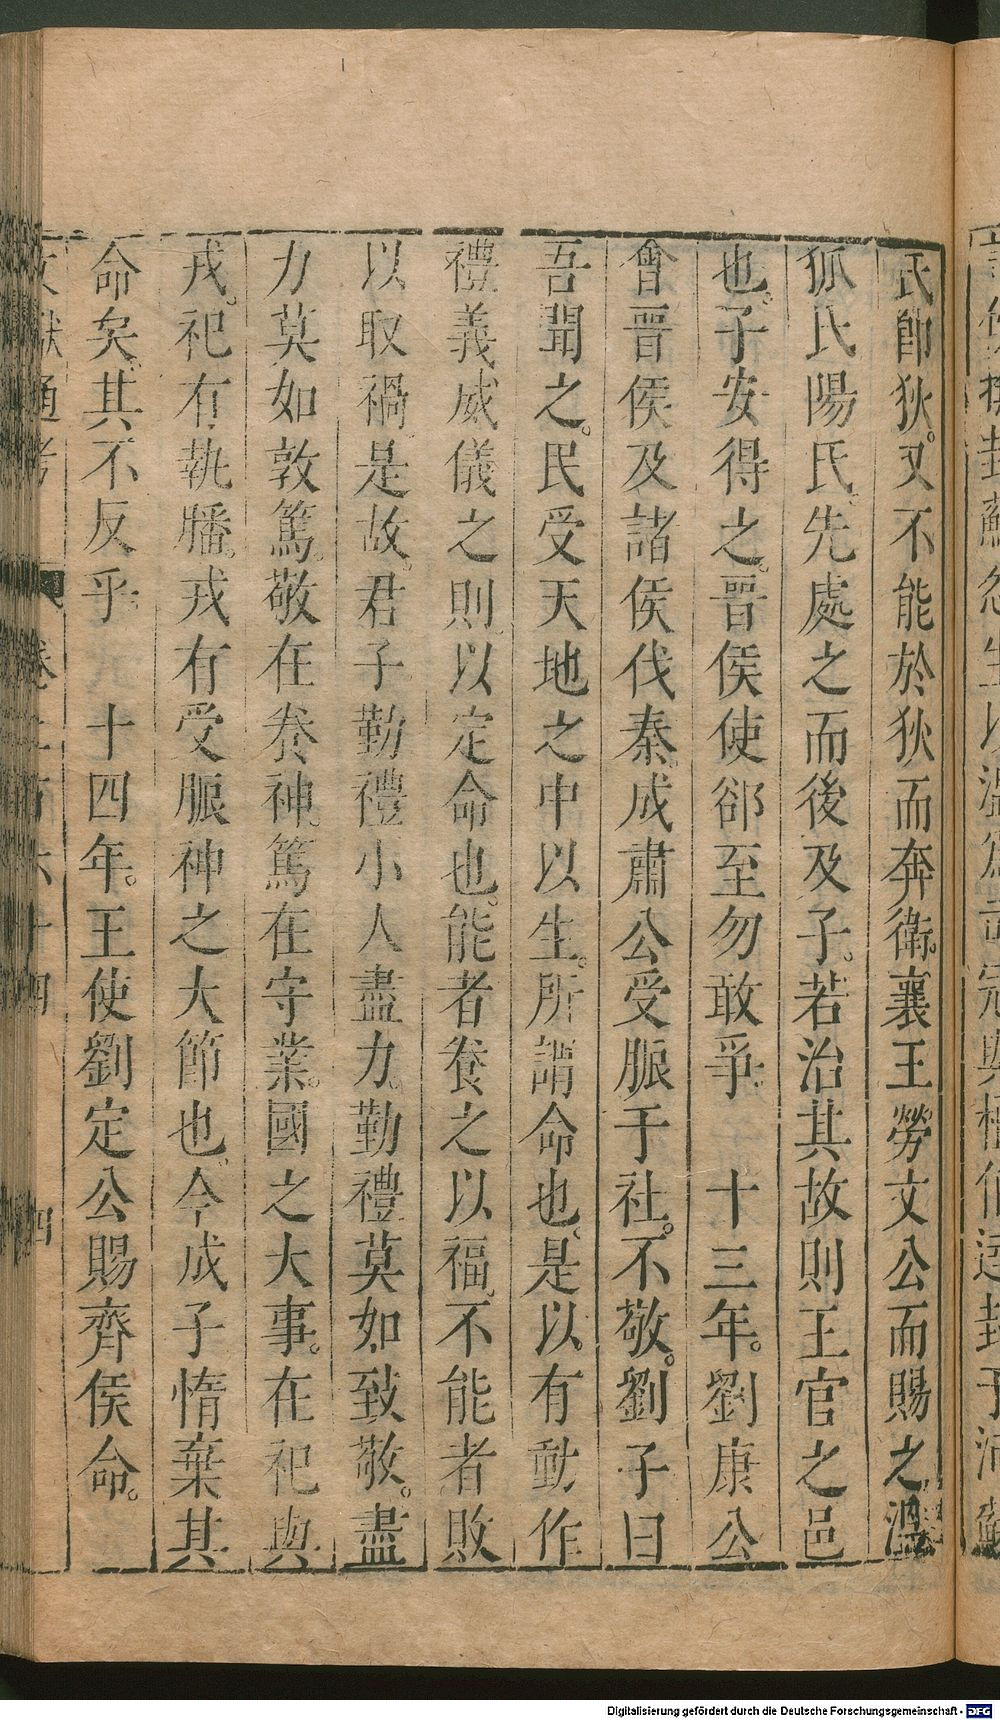 氏卽狄。又不能於狄而奔衛。襄王勞文公而賜之溫
狐氏陽氏。先處之而後及子。若治其故則王官之邑
也。子安得之。晉侯使郤至勿敢爭。　十三年。劉康公
會晉侯及諸侯伐秦。成肅公受脤于社。不敬。劉子曰
吾聞之。民受天地之中以生。所謂命也。是以有動作
禮義威儀之則。以定命也。能者養之以福。不能者敗
以取禍。是故君子勤禮小人盡力。勤禮莫如致敬。盡
力莫如敦篤。敬在養神。篤在守業。國之大事。在祀與
戎。祀有執膰。戎有受脤神之大節也。今成子惰棄其
命矣。其不反乎。　十四年。王使劉定公賜齊侯命。
文獻通考　卷二百六十四　四
Digitalisierung gefördert durch die Deutsche Forschungsgemeinschaft - DFG